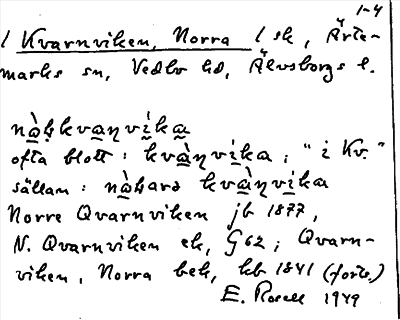 1-4
1 Kvarnviken, Norra 1 sk, Ärte-
marks sn, Vedbo hd, Älvsborgs l.
nàḥkvaṇvìka
ofta blott: kvàṇvika; "i Kv."
sällan: nàhard kvàṇvika
Norre Qvarnviken jb 1877,
N. Qvarnviken ek, G62; Qvarn-
viken, Norra bek, kb 1841 (forts.)
E. Rosell 1949